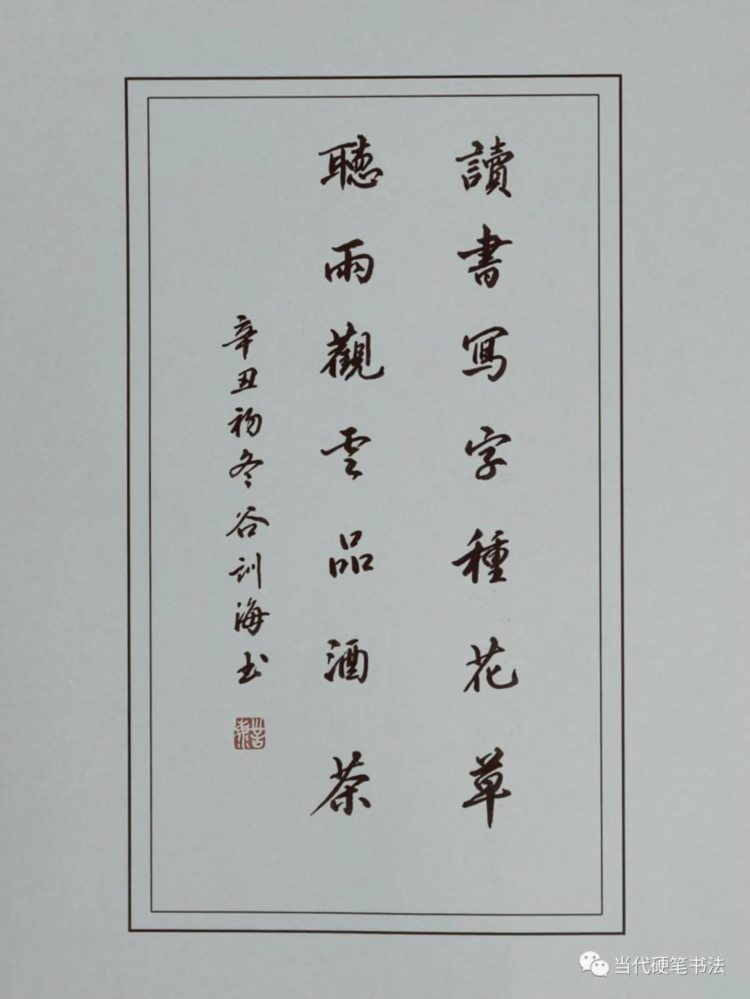 讀書寫字種花草
聽雨觀雲品酒茶
辛丑初冬谷训海书
当代硬笔书法